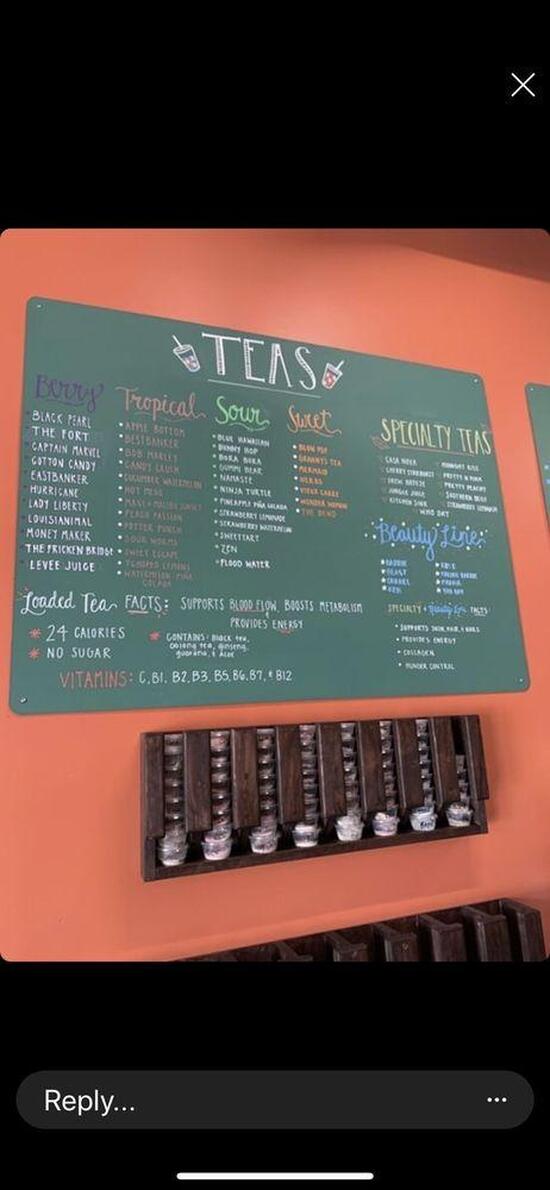 TEAS
Berry
BLACK PEARL
THE FORT
CAPTAIN MARVEL
COTTON CANDY
EASTBANKER
HURRICANE
LADY LIBERTY
LOUISIANIMAL
MONEY MAKER
THE PRICKEN BRIDGE
LEVEE JUICE
Tropical
APPLE BOTTOM
BESTBANKER
BOB MARLEY
CANDY CRUSH
CUCUMBER WATERMELON
HOT MESS
MAUI + MALIBU SUNSET
PEACH PASSION
POTTER PUNCH
SOUR WORMS
SWEET ESCAPE
TCHOUPED LEMONS
WATERMELON PIÑA
COLADA
Sour
BLUE HAWAIIAN
BUNNY HOP
BORA BORA
GUMMI BEAR
NAMASTE
NINJA TURTLE
PINEAPPLE PIÑA COLADA
STRAWBERRY LEMONADE
STRAWBERRY WATERMELON
SWEETTART
ZEN
FLOOD WATER
Sweet
BLOW POP
GRANNY'S TEA
MERMAID
NERDS
VIEUX CARRE
WONDER WOMAN
THE DEUO
SPECIALTY TEAS
CASA NOLA
CHERRY STARBURST
DREW BREEZE
JUNGLE JUICE
KITCHEN SINK
MIDNIGHT KISS
PRETTY N PINK
PRETTY PEACHY
SOUTHERN BELLE
STRAWBERRY LEMONADE
WHO DAT
Beauty Line
CHANEL
Loaded Tea FACTS: SUPPORTS BLOOD FLOW, BOOSTS METABOLISM
PROVIDES ENERGY
* 24 CALORIES
* NO SUGAR
* CONTAINS: Black tea,
oolong tea, ginseng,
guarana, & Aloe
VITAMINS: C, B1, B2, B3, B5, B6, B7, & B12
SPECIALTY + Beauty Line FACTS:
SUPPORTS SKIN, HAIR, & NAILS
PROVIDES ENERGY
COLLAGEN
HUNGER CONTROL
Reply...